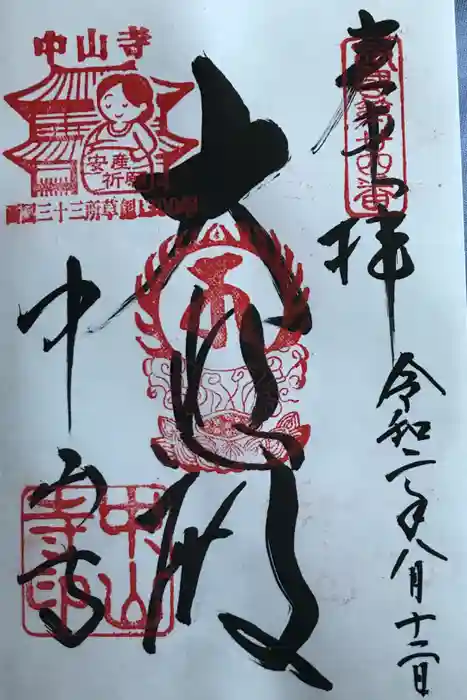 奉拝
西国第廿四番
令和二年八月十二日
大悲殿
中山寺
中山寺
安産
祈願
西国三十三所草創1300年
中山寺印